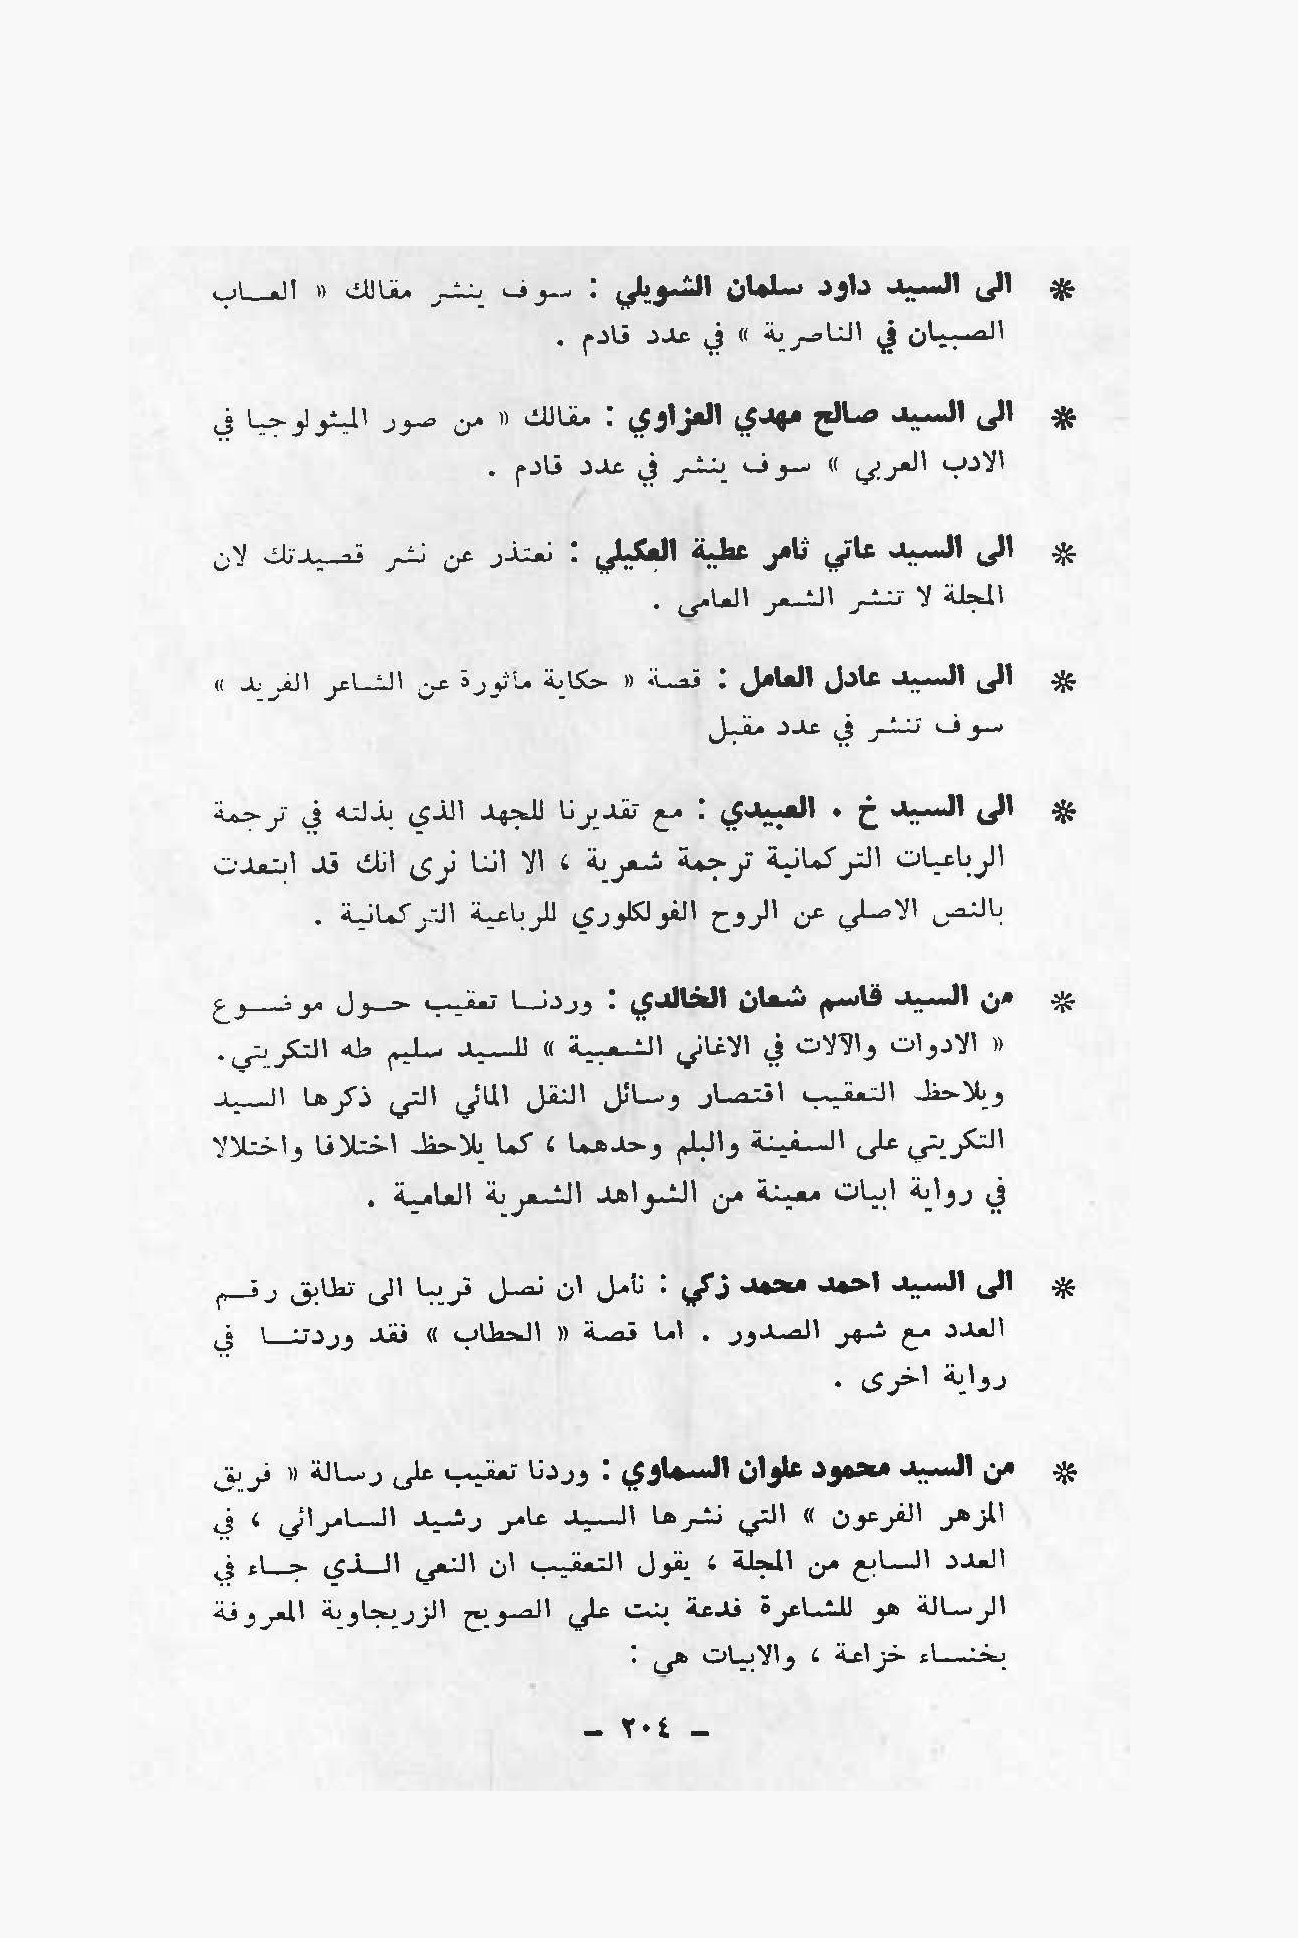 * الى السيد داود سلمان الشويلي : سوف ينشر مقالك « العاب
الصبيان في الناصرية » في عدد قادم .
* الى السيد صالح مهدي العزاوي : مقالك « من صور الميثولوجيا في
الادب العربي » سوف ينشر في عدد قادم .
* الى السيد عاتي ثامر عطية العكيلي : نعتذر عن نشر قصيدتك لان
المجلة لا تنشر الشعر العامي .
* الى السيد عادل العامل : قصة « حكاية مأثورة عن الشاعر الفريد »
سوف تنشر في عدد مقبل
* الى السيد خ . العبيدي : مع تقديرنا للجهد الذي بذلته في ترجمة
الرباعيات التركمانية ترجمة شعرية ، الا اننا نرى انك قد ابتعدت
بالنص الاصلي عن الروح الفولكلوري للرباعية التركمانية .
* من السيد قاسم شعان الخالدي : وردنا تعقيب حول موضوع
« الادوات والآلات في الاغاني الشعبية » للسيد سليم طه التكريتي .
ويلاحظ التعقيب اقتصار وسائل النقل المائي التي ذكرها السيد
التكريتي على السفينة والبلم وحدهما ، كما يلاحظ اختلافا واختلالا
في رواية ابيات معينة من الشواهد الشعرية العامية .
* الى السيد احمد محمد زكي : نأمل ان نصل قريبا الى تطابق رقم
العدد مع شهر الصدور . اما قصة « الحطاب » فقد وردتنا في
رواية اخرى .
* من السيد محمود علوان السماوي : وردنا تعقيب على رسالة « فريق
المزهر الفرعون » التي نشرها السيد عامر رشيد السامرائي ، في
العدد السابع من المجلة ، يقول التعقيب ان النعي الذي جاء في
الرسالة هو للشاعرة فدعة بنت علي الصويح الزريجاوية المعروفة
بخنساء خزاعة ، والابيات هي :
– ٢٠٤ –